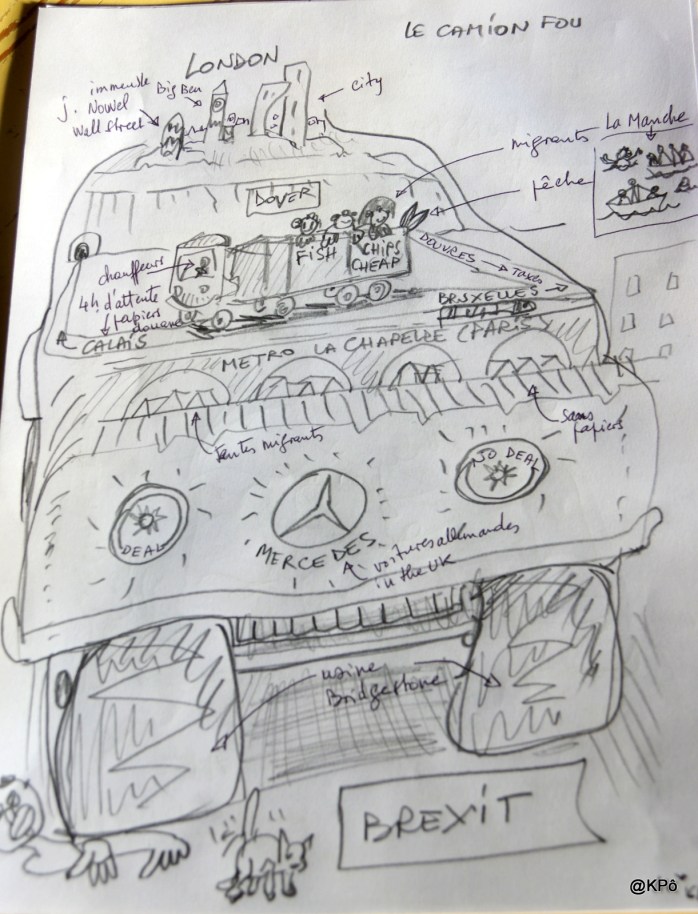 LE CAMION FOU
LONDON
immeuble
J. Nouvel
Wall Street
Big Ben
city
migrants
La Manche
pêche
DOVER
FISH
CHIPS
CHEAP
chauffeurs
4h d'attente
papiers
douane
CALAIS
DOUVRES → Taxes
BRUXELLES
METRO LA CHAPELLE (PARIS)
tentes migrants
sans
papiers
DEAL
NO DEAL
MERCEDES
voitures allemandes
in the UK
usine
Bridgestone
BREXIT
@KPô